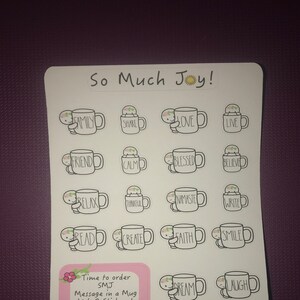 So Much Joy!
FAMILY SHAKE LOVE LIVE
FRIEND CALM BLESSED BELIEVE
RELAX THANKFUL NAMASTE WRITE
READ CREATE FAITH SMILE
Time to order
SMJ
Message in a Mug
DREAM LAUGH